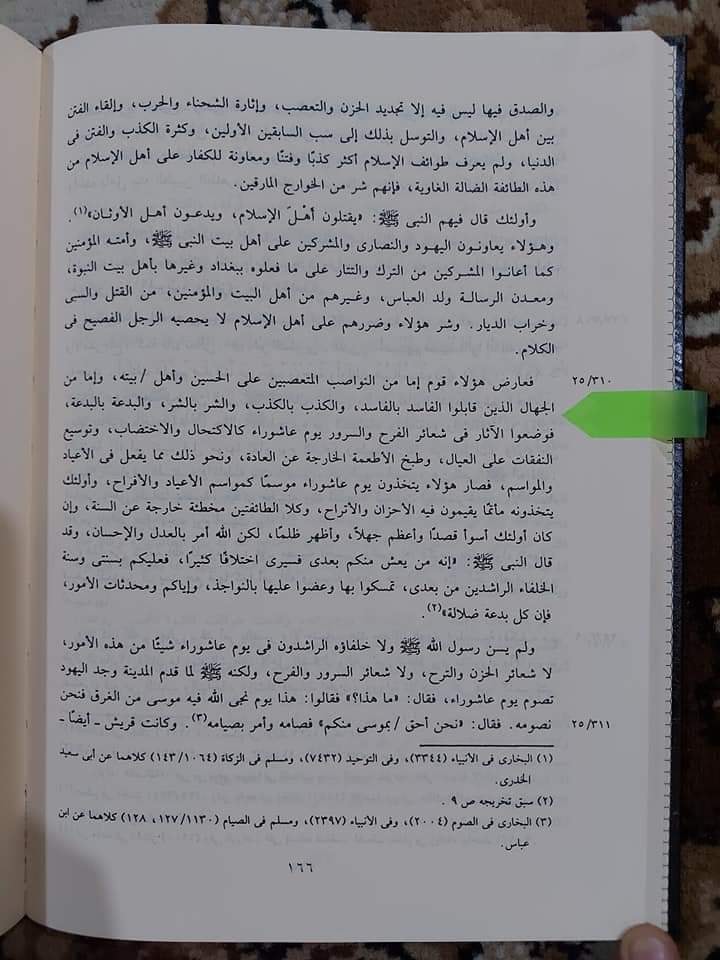 والصدق فيها ليس فيه إلا تجديد الحزن والتعصب، وإثارة الشحناء والحرب، وإلقاء الفتن
بين أهل الإسلام، والتوسل بذلك إلى سب السابقين الأولين، وكثرة الكذب والفتن فى
الدنيا، ولم يعرف طوائف الإسلام أكثر كذبًا وفتنًا ومعاونة للكفار على أهل الإسلام من
هذه الطائفة الضالة الغاوية، فإنهم شر من الخوارج المارقين.
وأولئك قال فيهم النبى ﷺ: «يقتلون أهْلَ الإسلام، ويدعـون أهـل الأوثـان»(١).
وهـؤلاء يعاونـون اليهـود والنصارى والمشركين على أهل بيت النبى ﷺ، وأمتـه المؤمنين
كما أعانـوا المشـركين من الترك والتتار على ما فعلوه ببغداد وغيرها بأهل بيت النبوة،
ومعـدن الرسالـة ولد العباس، وغيـرهم من أهل البيت والمؤمنين، من القتل والسبى
وخراب الديار. وشر هؤلاء وضررهم على أهل الإسلام لا يحصيه الرجل الفصيح فى
الكلام.
٢٥/٣١٠ فعارض هؤلاء قوم إما من النواصب المتعصبين على الحسين وأهل /بيته، وإما من
الجهال الذين قابلوا الفاسد بالفاسد، والكذب بالكذب، والشر بالشر، والبدعة بالبدعة،
فوضعوا الآثار فى شعائر الفرح والسرور يوم عاشوراء كالاكتحال والاختضاب، وتوسيع
النفقات على العيال، وطبخ الأطعمة الخارجة عن العادة، ونحو ذلك مما يفعل فى الأعياد
والمواسم، فصار هؤلاء يتخذون يوم عاشوراء موسمًا كمواسم الأعياد والأفراح، وأولئك
يتخذونه مأتمًا يقيمون فيه الأحزان والأتراح، وكلا الطائفتين مخطئة خارجة عن السنة، وإن
كان أولئك أسوأ قصدًا وأعظم جهلاً، وأظهر ظلمًا، لكن الله أمر بالعدل والإحسان، وقد
قال النبى ﷺ: «إنه من يعش منكم بعدى فسيرى اختلافًا كثيرًا، فعليكم بسنتى وسنة
الخلفاء الراشدين من بعدى، تمسكوا بها وعضوا عليها بالنواجذ، وإياكم ومحدثات الأمور،
فإن كل بدعة ضلالة»(٢).
ولم يسن رسول الله ﷺ ولا خلفاؤه الراشدون فى يوم عاشوراء شيئًا من هذه الأمور،
لا شعائر الحزن والترح، ولا شعائر السرور والفرح، ولكنه ﷺ لما قدم المدينة وجد اليهود
تصوم يوم عاشوراء، فقال: «ما هذا؟» فقالوا: هذا يوم نجى الله فيه موسى من الغرق فنحن
٢٥/٣١١ نصومه. فقال: «نحن أحق /بموسى منكم» فصامه وأمر بصيامه(٣). وكانت قريش ـ أيضًا ـ
(١) البخارى فى الأنبياء (٣٣٤٤)، وفى التوحيد (٧٤٣٢)، ومسلم فى الزكاة (١٤٣/١٠٦٤) كلاهما عن أبى سعيد
الخدرى.
(٢) سبق تخريجه ص ٩ .
(٣) البخارى فى الصوم (٢٠٠٤)، وفى الأنبياء (٢٣٩٧)، ومسلم فى الصيام (١٢٧/١١٣٠، ١٢٨) كلاهما عن ابن
عباس.
١٦٦